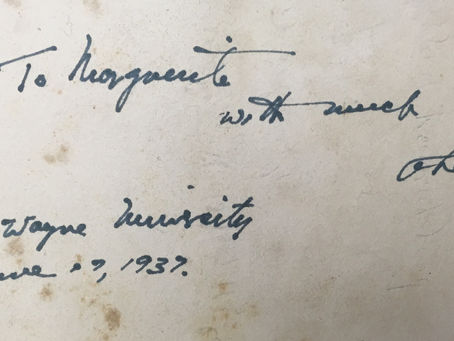 To Marguerite
with much
Wayne University
1937.